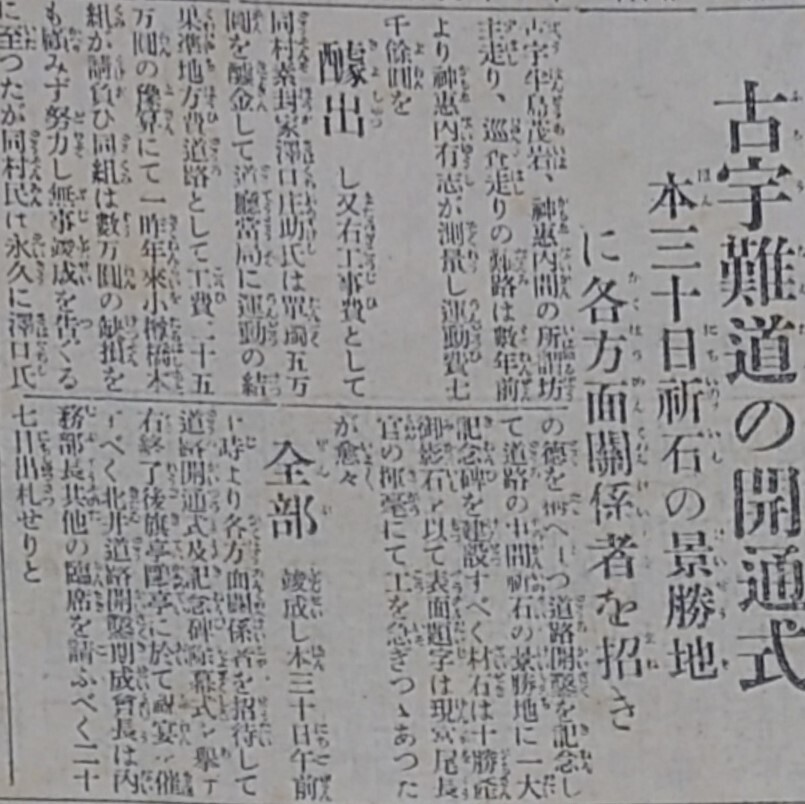 古宇難道の開通式
本三十日祈石の景勝地
に各方面關係者を招き
古宇半島茂岩、神惠内間の所謂坊
主走り、巡査走りの難路は數年前
より神惠内有志が測量し運動費七
千餘圓を
醵出し又右工事費として
同村素封家澤口庄助氏は單獨五万
圓を醵金して道廳當局に運動の結
果準地方費道路として工費二十五
万圓の豫算にて一昨年來小樽橋本
組が請負ひ同組は數万圓の缺損を
も顧みず努力し無事竣成を告ぐる
に至つたが同村民は永久に澤口氏
の德を へつ道路開鑿を記念し
て道路の中間祈石の景勝地に一大
記念碑を建設すべく材石は十勝産
御影石を以て表面題字は現宮尾長
官の揮毫にて工を急ぎつゝあつた
が愈々
全部竣成し本三十日午前
時より各方面關係者を招待して
道路開通式及記念碑除幕式を擧げ
右終了後旗亭 亭に於て祝宴を催
すべく北井道路開鑿期成會長は内
務部長其他の臨席を請ふべく二十
七日出札せりと